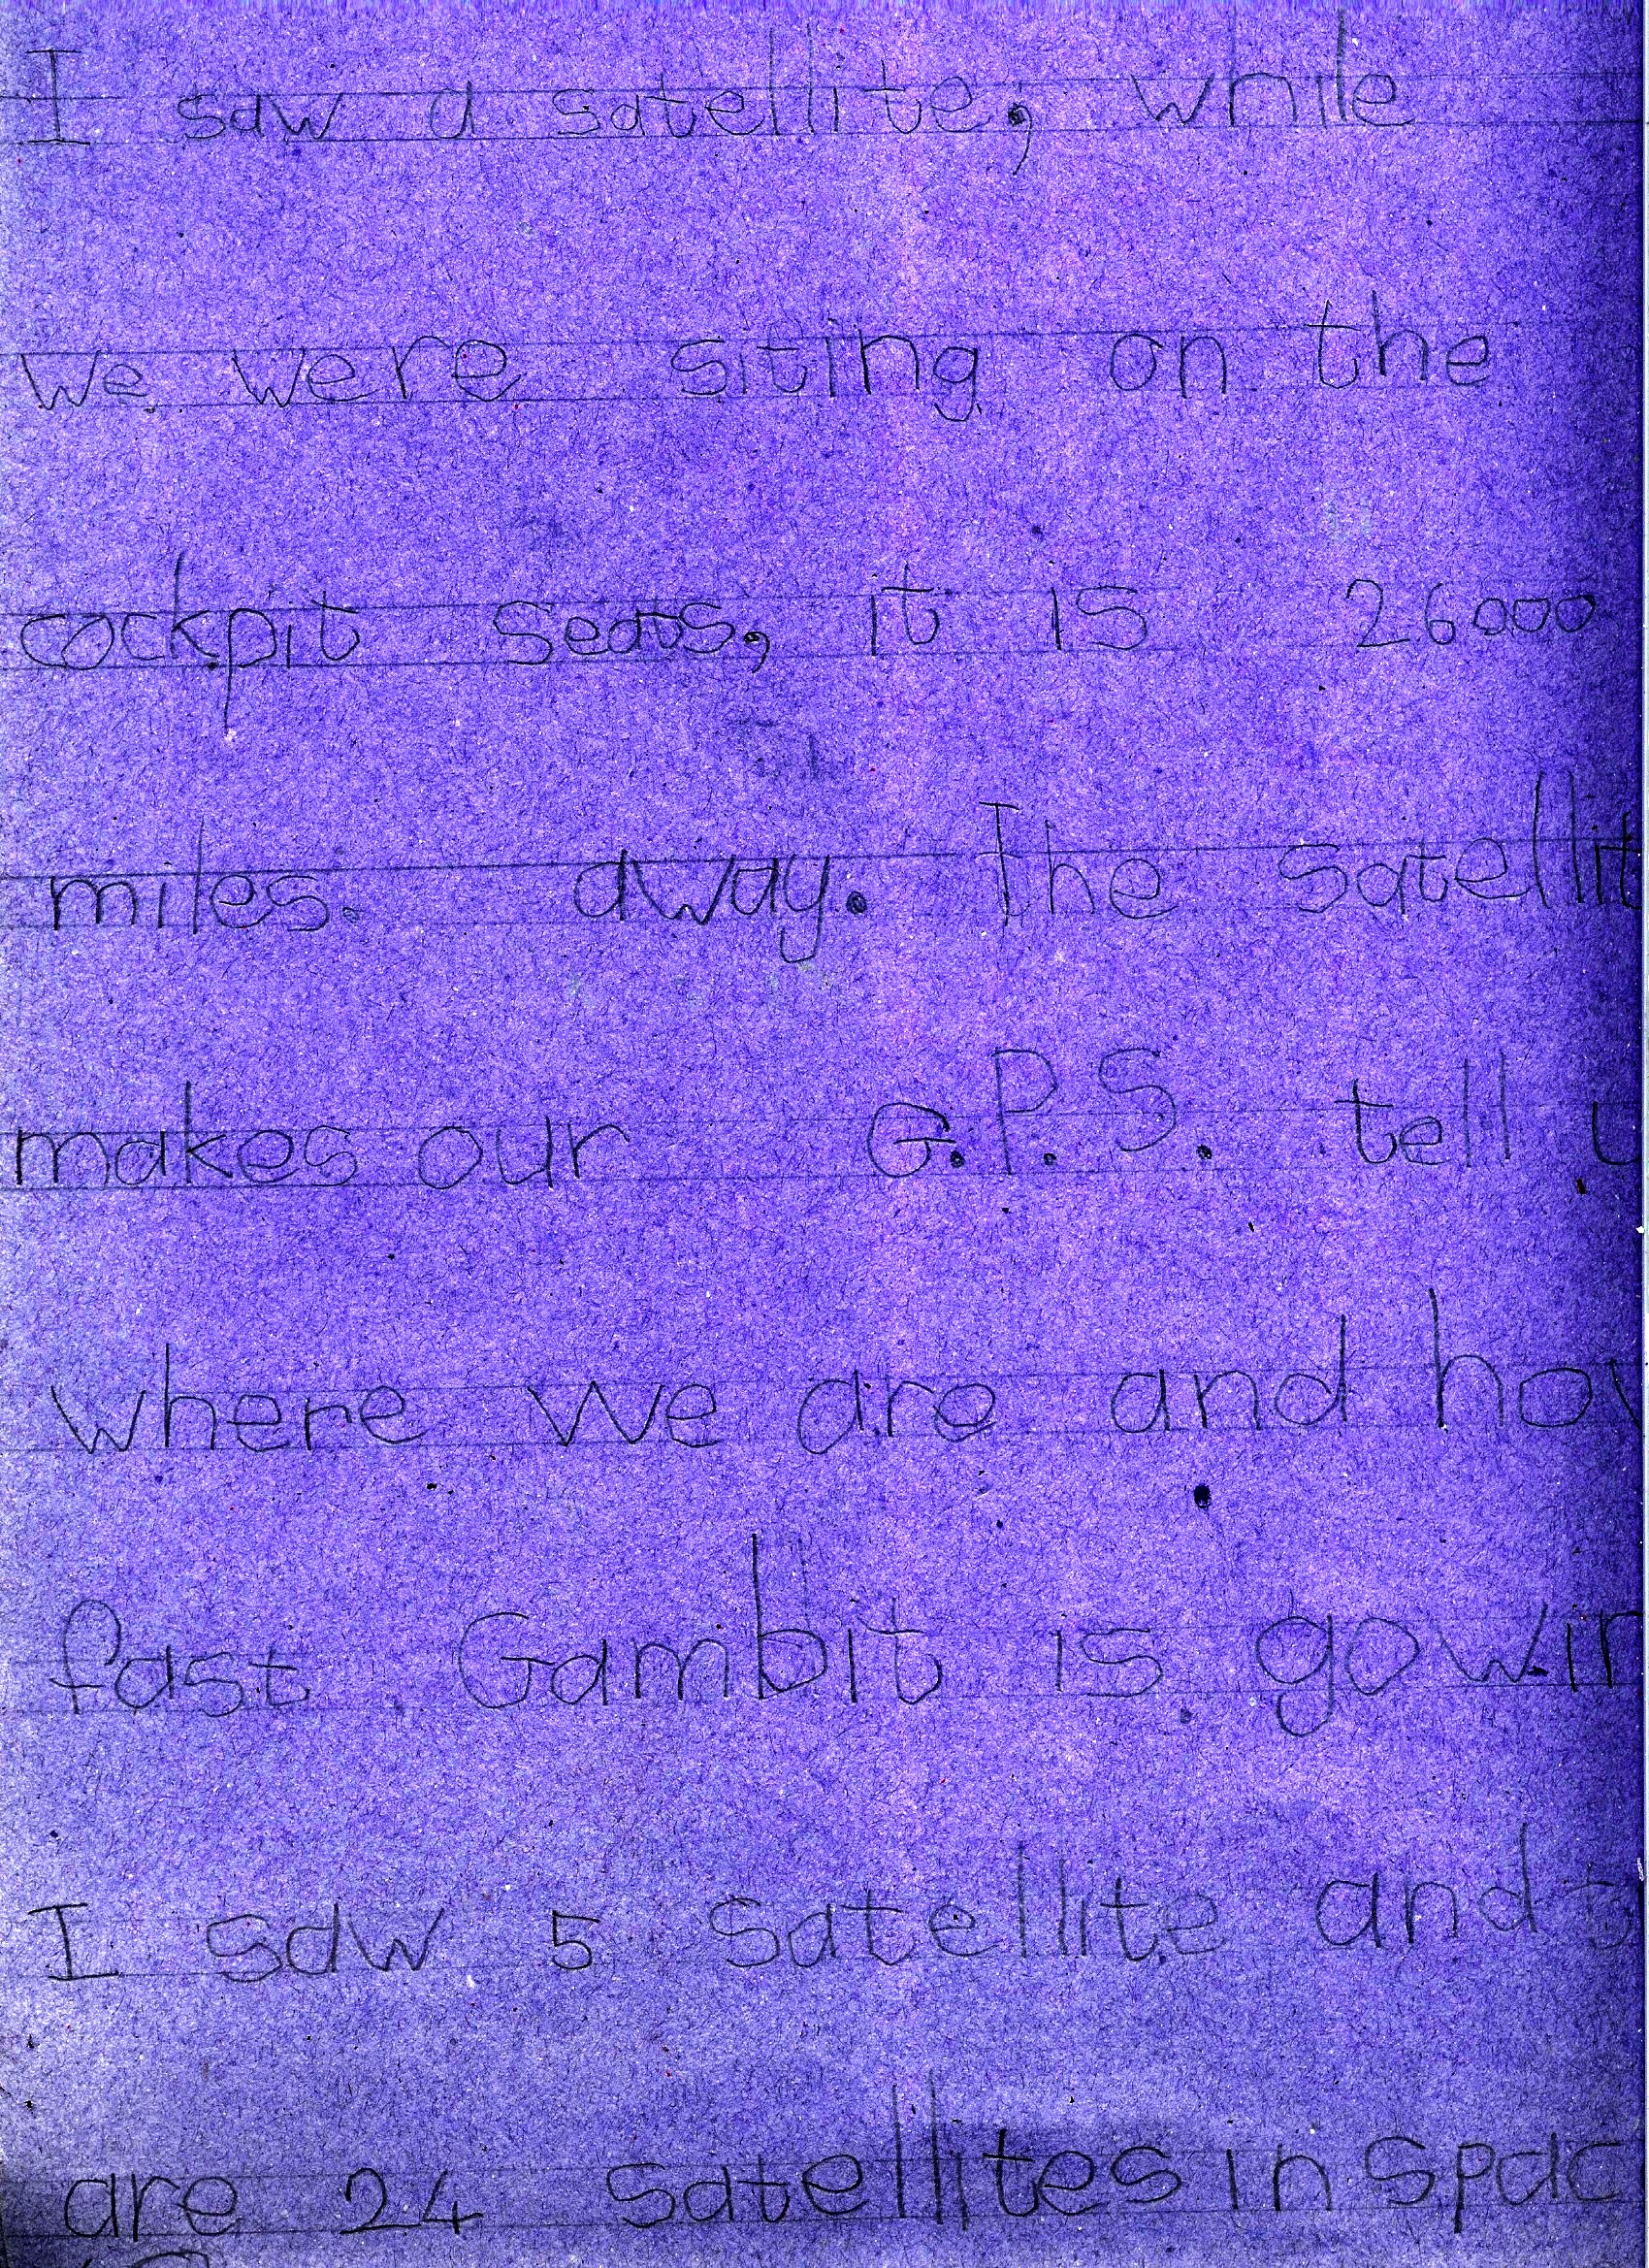 I saw a satellite, while
we were siting on the
cockpit seats, it is 26000
miles away. The satellit
makes our G.P.S. tell u
where we are and how
fast Gambit is gowin
I saw 5 satellite and
are 24 satellites in spac